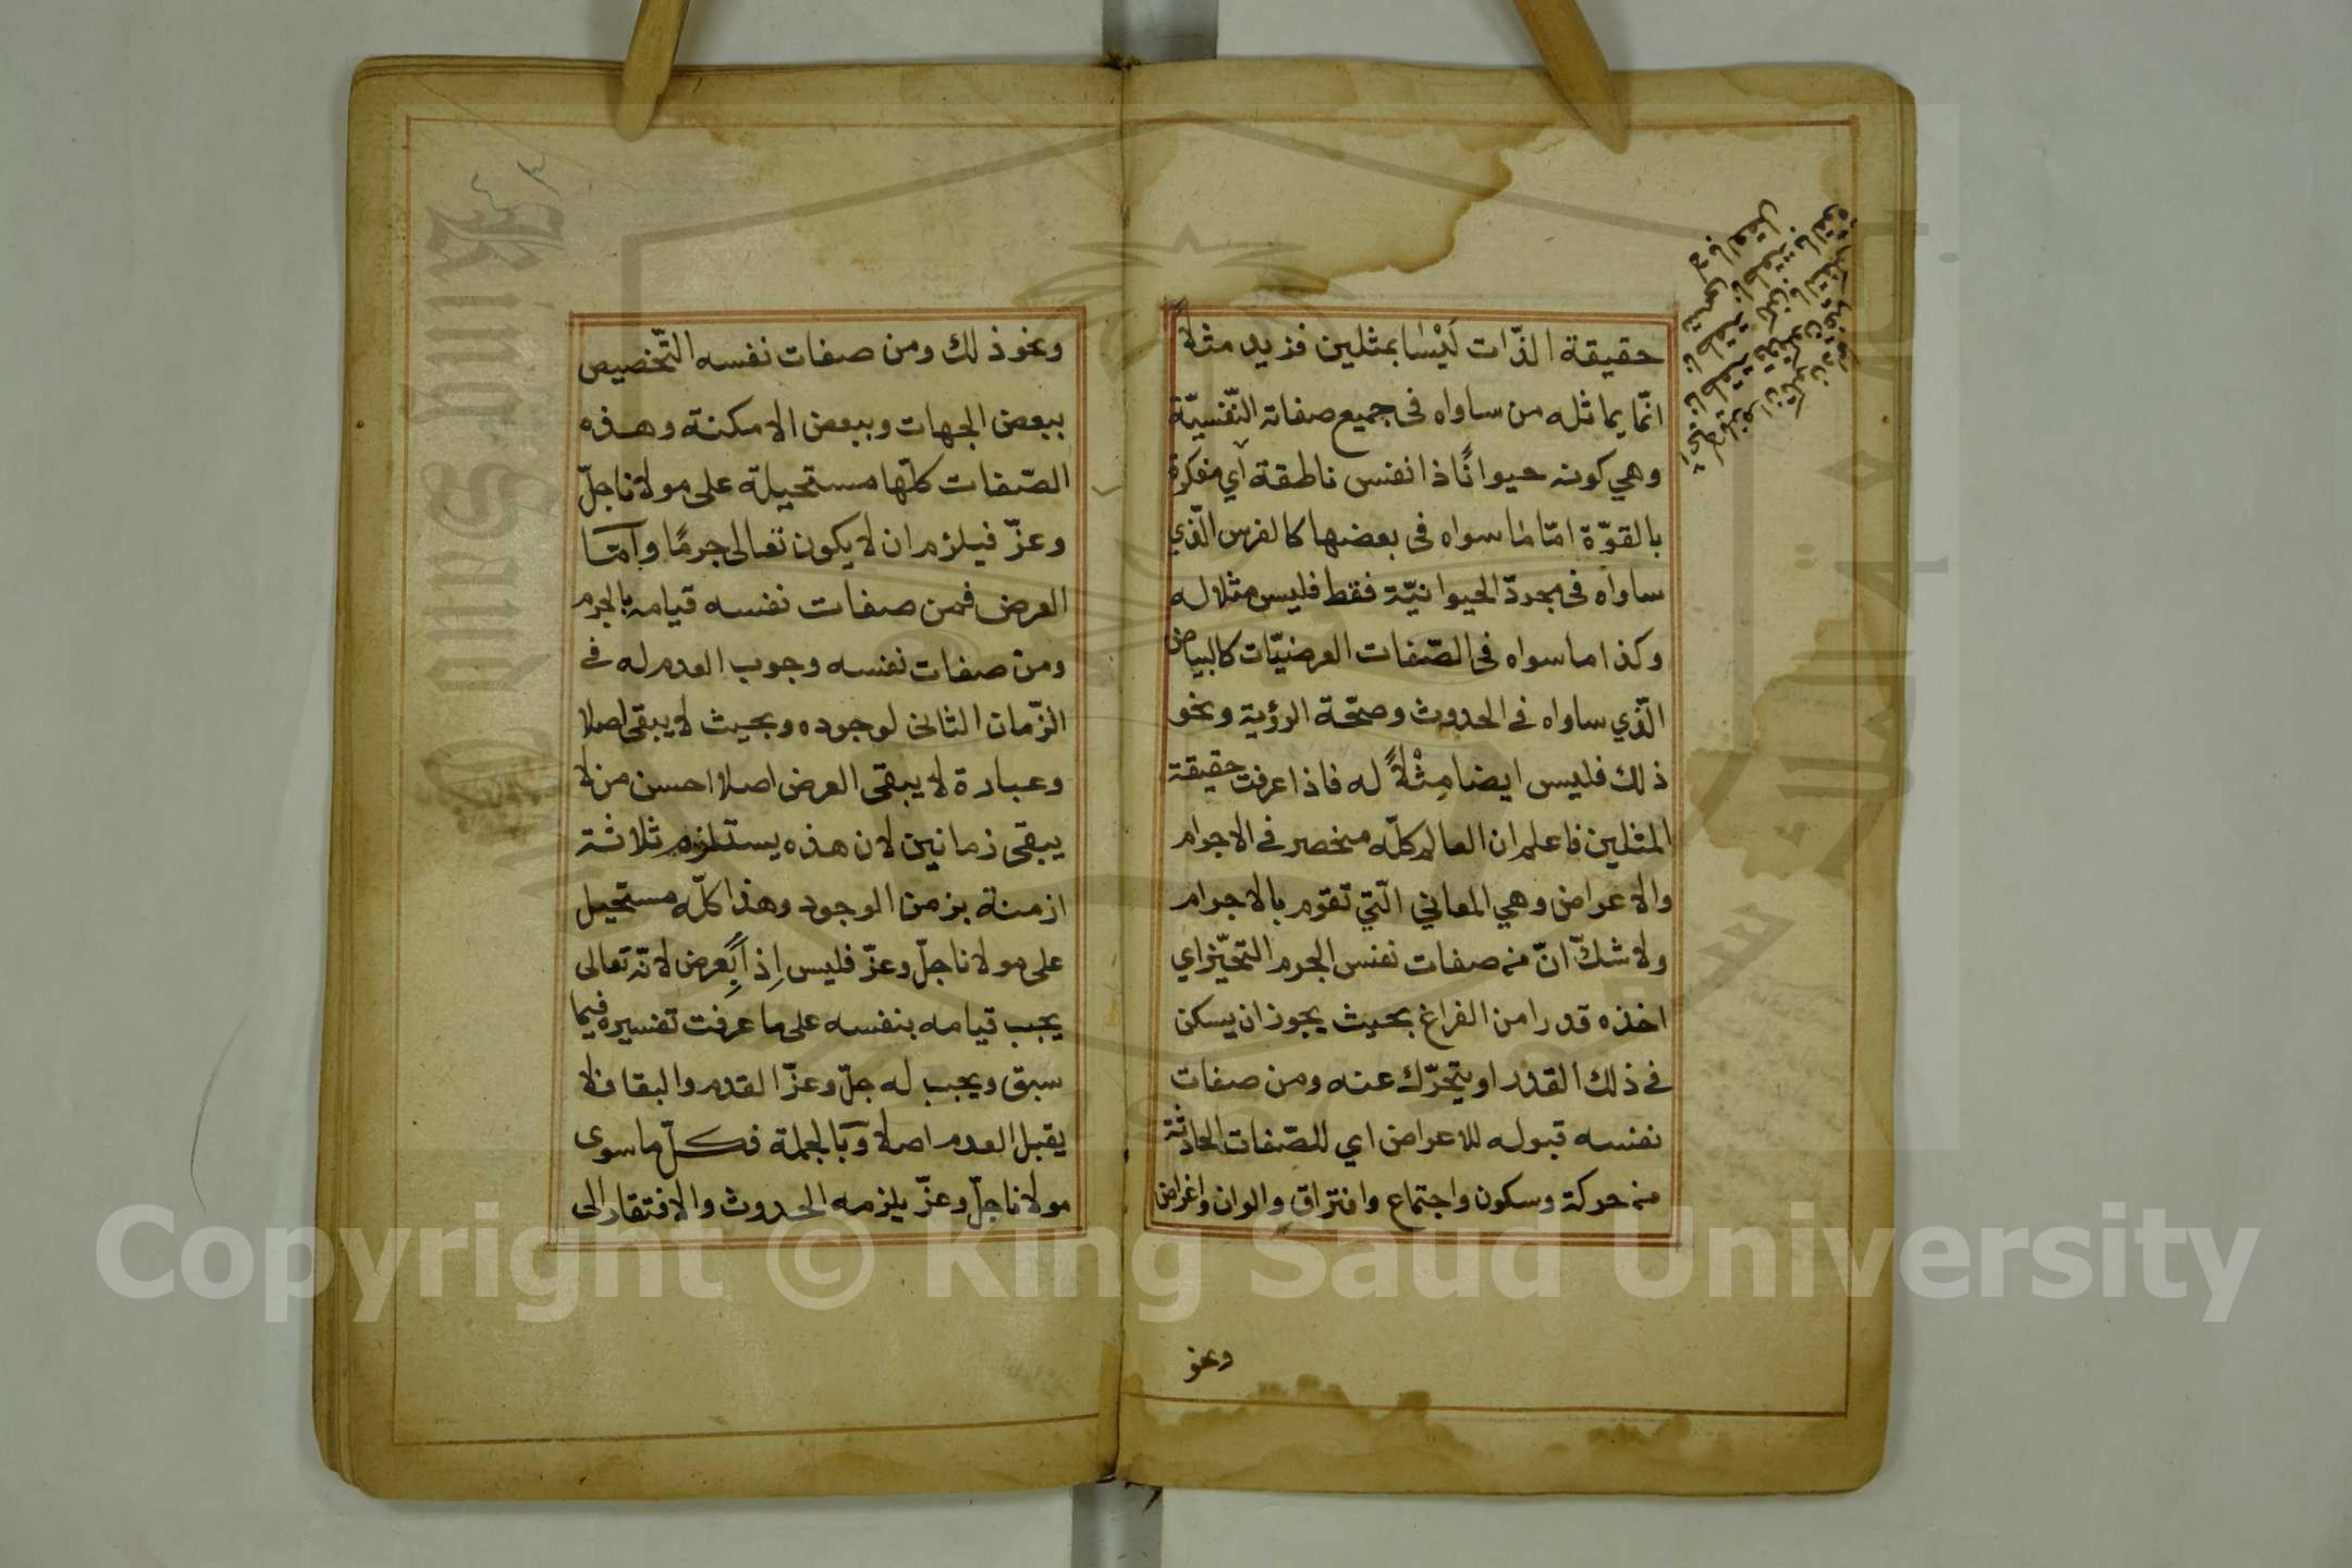 حقيقة الذّات لَيْسَا بمثلين فزيد مثلاً
انّما يماثله من ساواه فى جميع صفاته النّفسيّة
وهي كونه حيوانًا ذا نفس ناطقة أي مفكرة
بالقوّة امّا ما سواه فى بعضها كالفرس الّذي
ساواه فى مجردّ الحيوانيّة فقط فليس مثلا له
وكذا ما سواه فى الصّفات العرضيّات كالبياض
الّذي ساواه فى الحدوث وصحّة الرؤية ونحو
ذلك فليس ايضا مِثْلاً له فاذا عرفت حقيقة
المثلين فاعلم ان العالم كلّه منحصر فى الاجرام
والاعراض وهي المعاني الّتي تقوم بالاجرام
ولا شكّ انّ من صفات نفس الجرم التحيّز اي
اخذه قدرا من الفراغ بحيث يجوز ان يسكن
فى ذلك القدر او يتحرّك عنه ومن صفات
نفسه قبوله للاعراض اي للصّفات الحادثة
من حركة وسكون واجتماع وافتراق والوان واغراض
ونحو
ونحو ذلك ومن صفات نفسه التّخصيص
ببعض الجهات وببعض الامكنة وهذه
الصّفات كلّها مستحيلة على مولانا جلّ
وعزّ فيلزم ان لا يكون تعالى جرمًا وامّا
العرض فمن صفات نفسه قيامه بالجرم
ومن صفات نفسه وجوب العدم له فى
الزّمان الثانى لوجوده وبحيث لا يبقى اصلا
وعبارة لا يبقى العرض اصلا احسن من لا
يبقى زمانين لان هذه يستلزم ثلاثة
ازمنة بزمن الوجود وهذا كلّه مستحيل
على مولانا جلّ وعزّ فليس اِذاً بِعرض لانّه تعالى
يجب قيامه بنفسه على ما عرفت تفسيره فيما
سبق ويجب له جلّ وعزّ القدم والبقا فلا
يقبل العدم اصلا وبالجملة فكلّ ما سوى
مولانا جلّ وعزّ يلزمه الحدوث والافتقار الى
Copyright © King Saud University